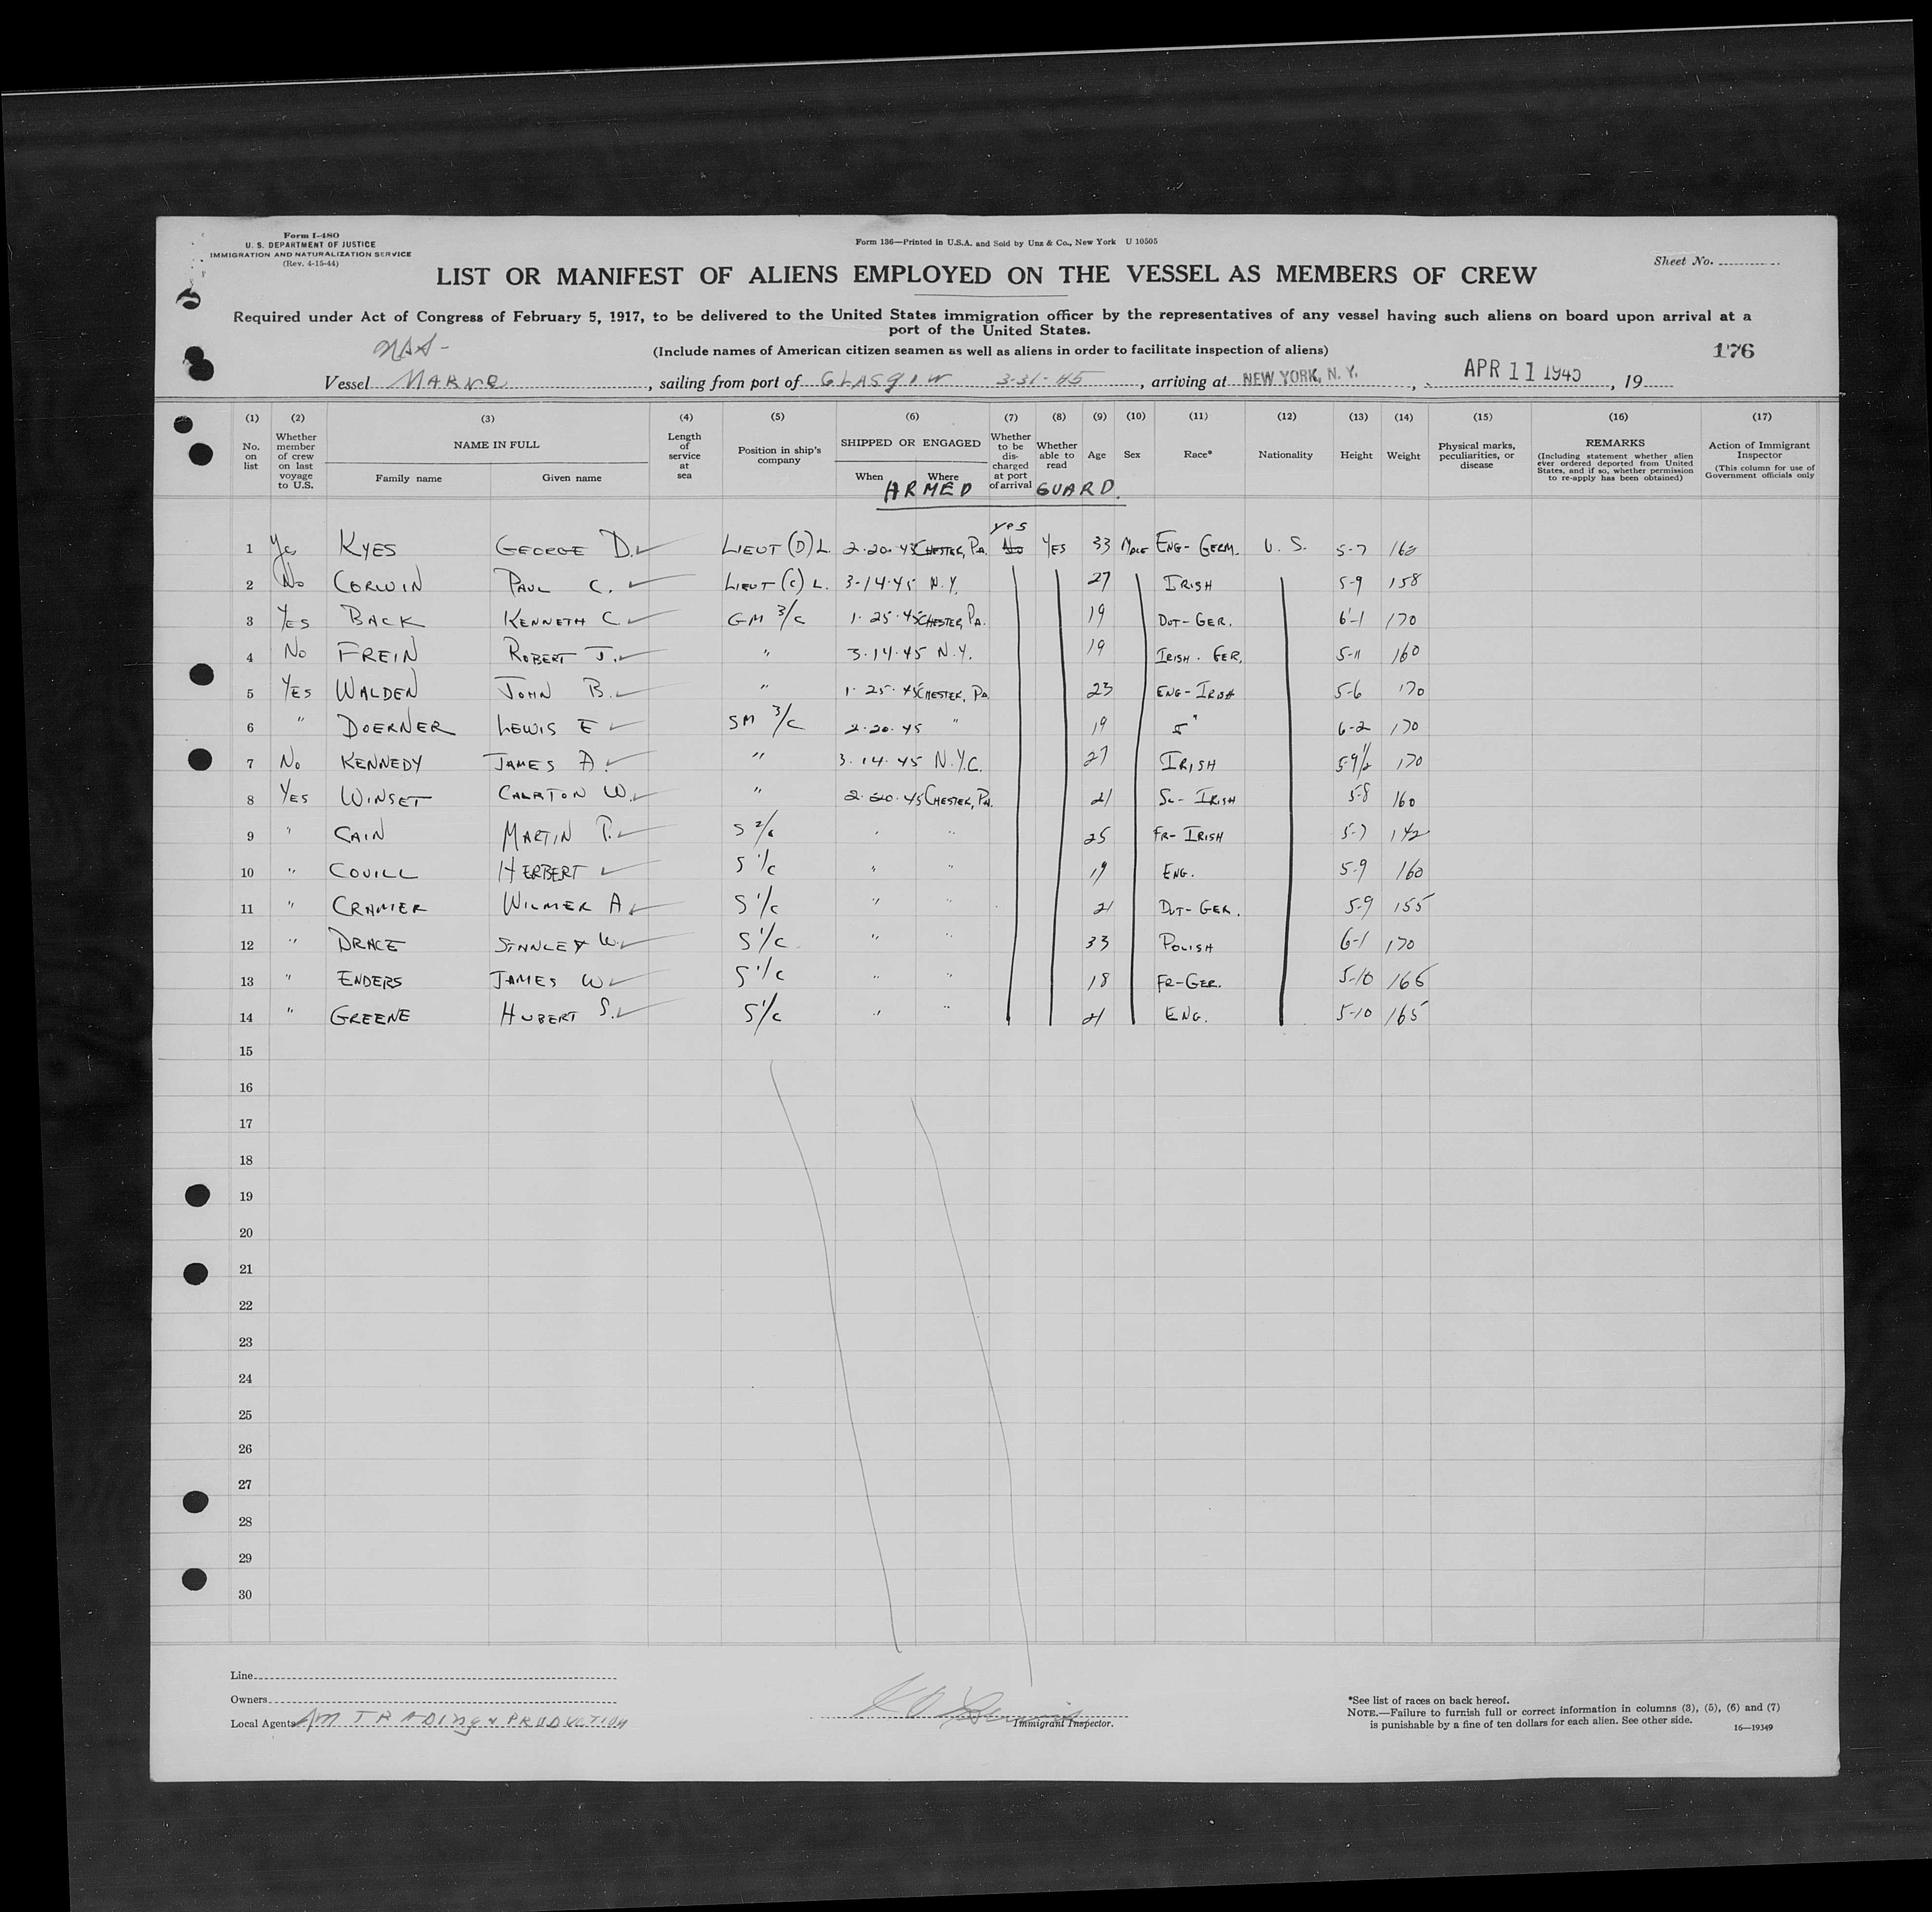 Form I-480
U. S. DEPARTMENT OF JUSTICE
IMMIGRATION AND NATURALIZATION SERVICE
(Rev. 4-15-44)
Form 136—Printed in U.S.A. and Sold by Unz & Co., New York U 10505
Sheet No.
LIST OR MANIFEST OF ALIENS EMPLOYED ON THE VESSEL AS MEMBERS OF CREW
Required under Act of Congress of February 5, 1917, to be delivered to the United States immigration officer by the representatives of any vessel having such aliens on board upon arrival at a
port of the United States.
(Include names of American citizen seamen as well as aliens in order to facilitate inspection of aliens)
176
Vessel MARNE, sailing from port of GLASGOW 3-31-45, arriving at NEW YORK, N. Y., APR 11 1945, 19
(1) (2) (3) (4) (5) (6) (7) (8) (9) (10) (11) (12) (13) (14) (15) (16) (17)
No. on list
Whether member of crew on last voyage to U.S.
NAME IN FULL
Family name Given name
Length of service at sea
Position in ship's company
SHIPPED OR ENGAGED
When Where
Whether to be discharged at port of arrival
Whether able to read
Age
Sex
Race*
Nationality
Height
Weight
Physical marks, peculiarities, or disease
REMARKS
(Including statement whether alien ever ordered deported from United States, and if so, whether permission to re-apply has been obtained)
Action of Immigrant Inspector
(This column for use of Government officials only
ARMED GUARD.
yes
1 Yes KYES GEORGE D. LIEUT (D) L. 2-20-45 CHESTER, PA. No YES 33 MALE ENG-GERM. U. S. 5-7 160
2 No CORWIN PAUL C. LIEUT (C) L. 3-14-45 N.Y. 27 IRISH 5-9 158
3 YES BACK KENNETH C. GM 3/C 1-25-45 CHESTER, PA. 19 DUT-GER. 6-1 170
4 No FREIN ROBERT J. " 3-14-45 N.Y. 19 IRISH-GER. 5-11 160
5 YES WALDEN JOHN B. " 1-25-45 CHESTER, PA. 23 ENG-IRISH 5-6 170
6 " DOERNER LEWIS E SM 3/C 2-20-45 " 19 " 6-2 170
7 No KENNEDY JAMES A. " 3-14-45 N.Y.C. 27 IRISH 5-9½ 170
8 YES WINSET CALRTON W. " 2-20-45 CHESTER, PA. 21 SC-IRISH 5-8 160
9 " CAIN MARTIN P. S 2/C " " 25 FR-IRISH 5-7 142
10 " COVILL HERBERT S 1/C " " 19 ENG. 5-9 160
11 " CRAMER WILMER A S 1/C " " 21 DUT-GER. 5-9 155
12 " DRACE W. S 1/C " " 33 POLISH 6-1 170
13 " ENDERS JAMES W S 1/C " " 18 FR-GER. 5-10 166
14 " GREENE HUBERT S. S 1/C " " 21 ENG. 5-10 165
15
16
17
18
19
20
21
22
23
24
25
26
27
28
29
30
Line
Owners
Local Agents AM TRADING & PRODUCTION
Immigrant Inspector.
*See list of races on back hereof.
NOTE.—Failure to furnish full or correct information in columns (3), (5), (6) and (7)
is punishable by a fine of ten dollars for each alien. See other side.
16—19349